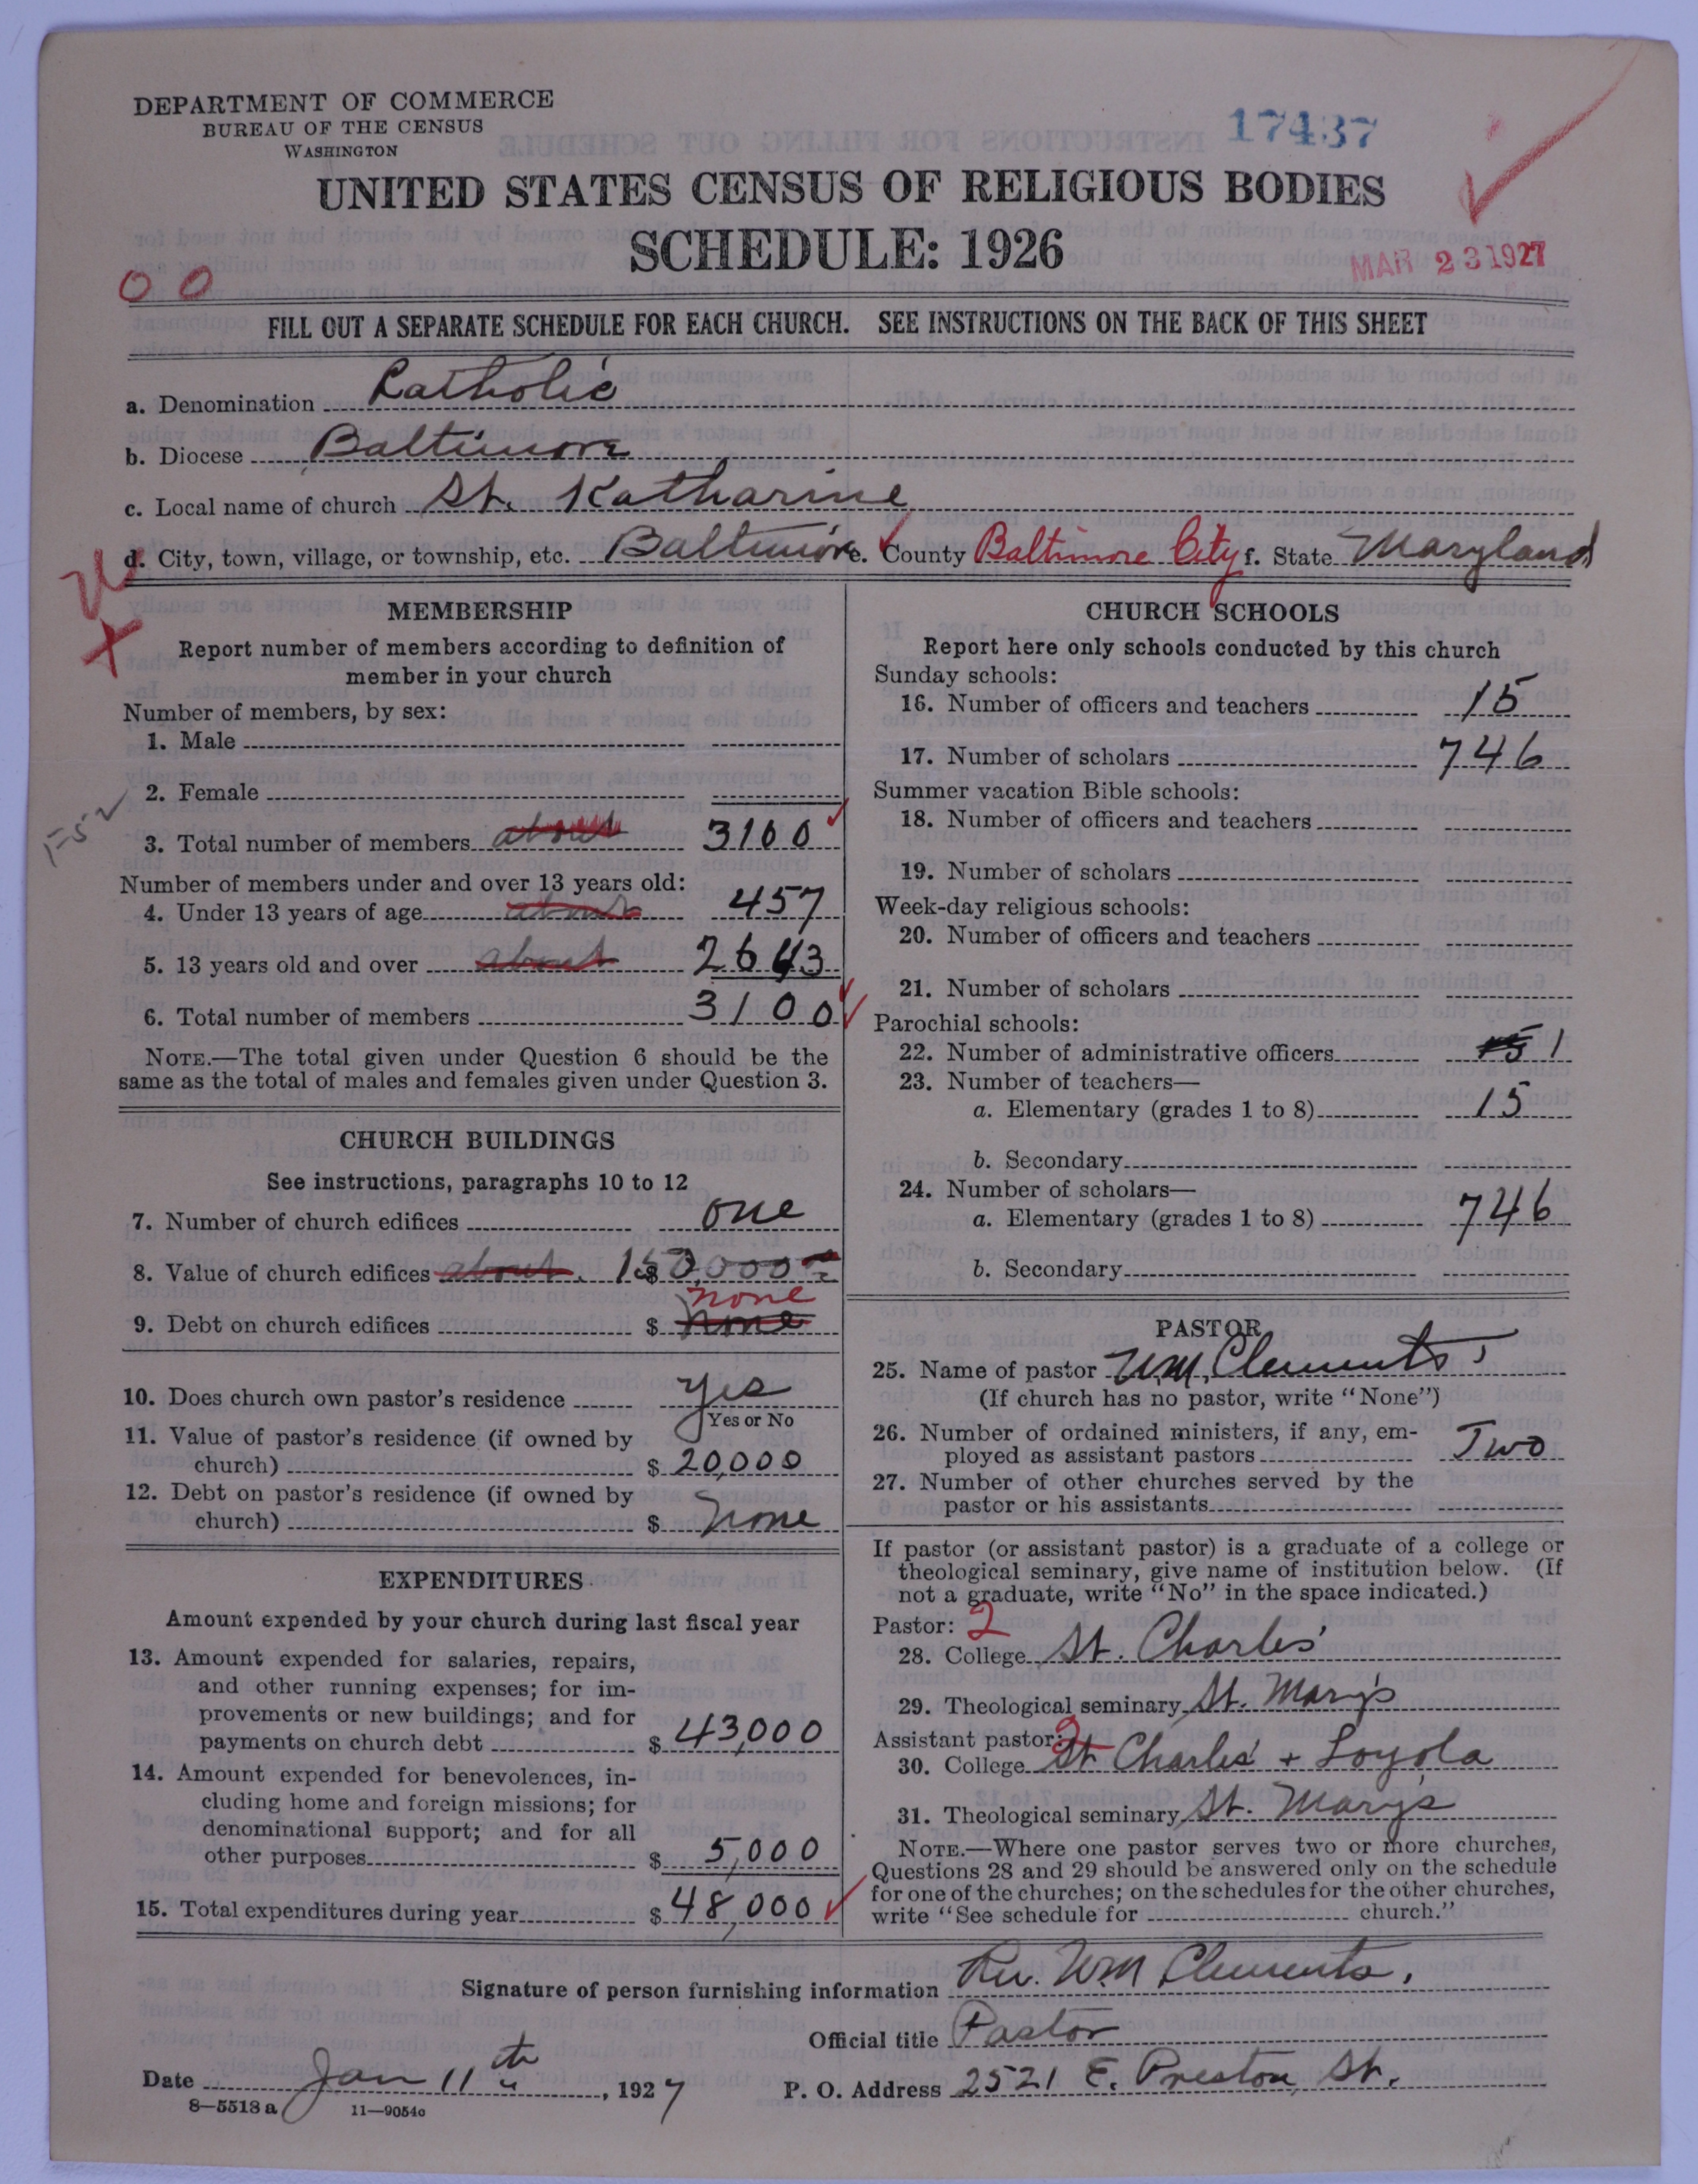 DEPARTMENT OF COMMERCE
BUREAU OF THE CENSUS
WASHINGTON
17437
UNITED STATES CENSUS OF RELIGIOUS BODIES
SCHEDULE: 1926
MAR 23 1927
00
FILL OUT A SEPARATE SCHEDULE FOR EACH CHURCH. SEE INSTRUCTIONS ON THE BACK OF THIS SHEET
a. Denomination Catholic
b. Diocese Baltimore
c. Local name of church St. Katharine
d. City, town, village, or township, etc. Baltimore e. County Baltimore City f. State Maryland
MEMBERSHIP
Report number of members according to definition of
member in your church
Number of members, by sex:
1. Male
2. Female
1-52
3. Total number of members about 3100
Number of members under and over 13 years old:
4. Under 13 years of age about 457
5. 13 years old and over about 2643
6. Total number of members 3100
NOTE.—The total given under Question 6 should be the
same as the total of males and females given under Question 3.
CHURCH BUILDINGS
See instructions, paragraphs 10 to 12
7. Number of church edifices one
8. Value of church edifices about $ 150,000
none
9. Debt on church edifices $ none
10. Does church own pastor's residence yes
Yes or No
11. Value of pastor's residence (if owned by
church) $ 20,000
12. Debt on pastor's residence (if owned by
church) $ none
EXPENDITURES
Amount expended by your church during last fiscal year
13. Amount expended for salaries, repairs,
and other running expenses; for im-
provements or new buildings; and for
payments on church debt $ 43,000
14. Amount expended for benevolences, in-
cluding home and foreign missions; for
denominational support; and for all
other purposes $ 5,000
15. Total expenditures during year $ 48,000
CHURCH SCHOOLS
Report here only schools conducted by this church
Sunday schools:
16. Number of officers and teachers 15
17. Number of scholars 746
Summer vacation Bible schools:
18. Number of officers and teachers
19. Number of scholars
Week-day religious schools:
20. Number of officers and teachers
21. Number of scholars
Parochial schools:
22. Number of administrative officers 15 1
23. Number of teachers—
a. Elementary (grades 1 to 8) 15
b. Secondary
24. Number of scholars—
a. Elementary (grades 1 to 8) 746
b. Secondary
PASTOR
25. Name of pastor Wm. Clements
(If church has no pastor, write "None")
26. Number of ordained ministers, if any, em-
ployed as assistant pastors Two
27. Number of other churches served by the
pastor or his assistants
If pastor (or assistant pastor) is a graduate of a college or
theological seminary, give name of institution below. (If
not a graduate, write "No" in the space indicated.)
Pastor: 2
28. College St. Charles'
29. Theological seminary St. Mary's
Assistant pastor: 2
30. College St Charles' + Loyola
31. Theological seminary St. Mary's
NOTE.—Where one pastor serves two or more churches,
Questions 28 and 29 should be answered only on the schedule
for one of the churches; on the schedules for the other churches,
write "See schedule for church."
Signature of person furnishing information Rev. Wm Clements.
Official title Pastor
Date Jan 11th, 1927 P. O. Address 2521 E. Preston St.
8—5518 a 11—9054c